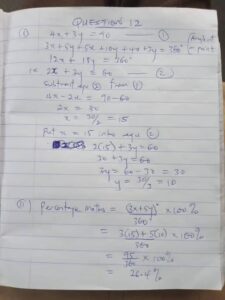 QUESTIONS 12
① 4x + 3y = 90 ——— ① (Angle at a point
3x + 5y + 5x + 10y + 4x + 3y = 360°
12x + 18y = 360°
ie 2x + 3y = 60 ——— ②
Subtract eqn ② from ①
4x - 2x = 90 - 60
2x = 30
x = 30/2 = 15
Put x = 15 into eqn ②
2(15) + 3y = 60
30 + 3y = 60
3y = 60 - 30 = 30
y = 30/3 = 10
Percentage Maths = (3x + 5y)°/360° × 100%
= 3(15) + 5(10)/360 × 100%
= 95/360 × 100%
= 26.4%